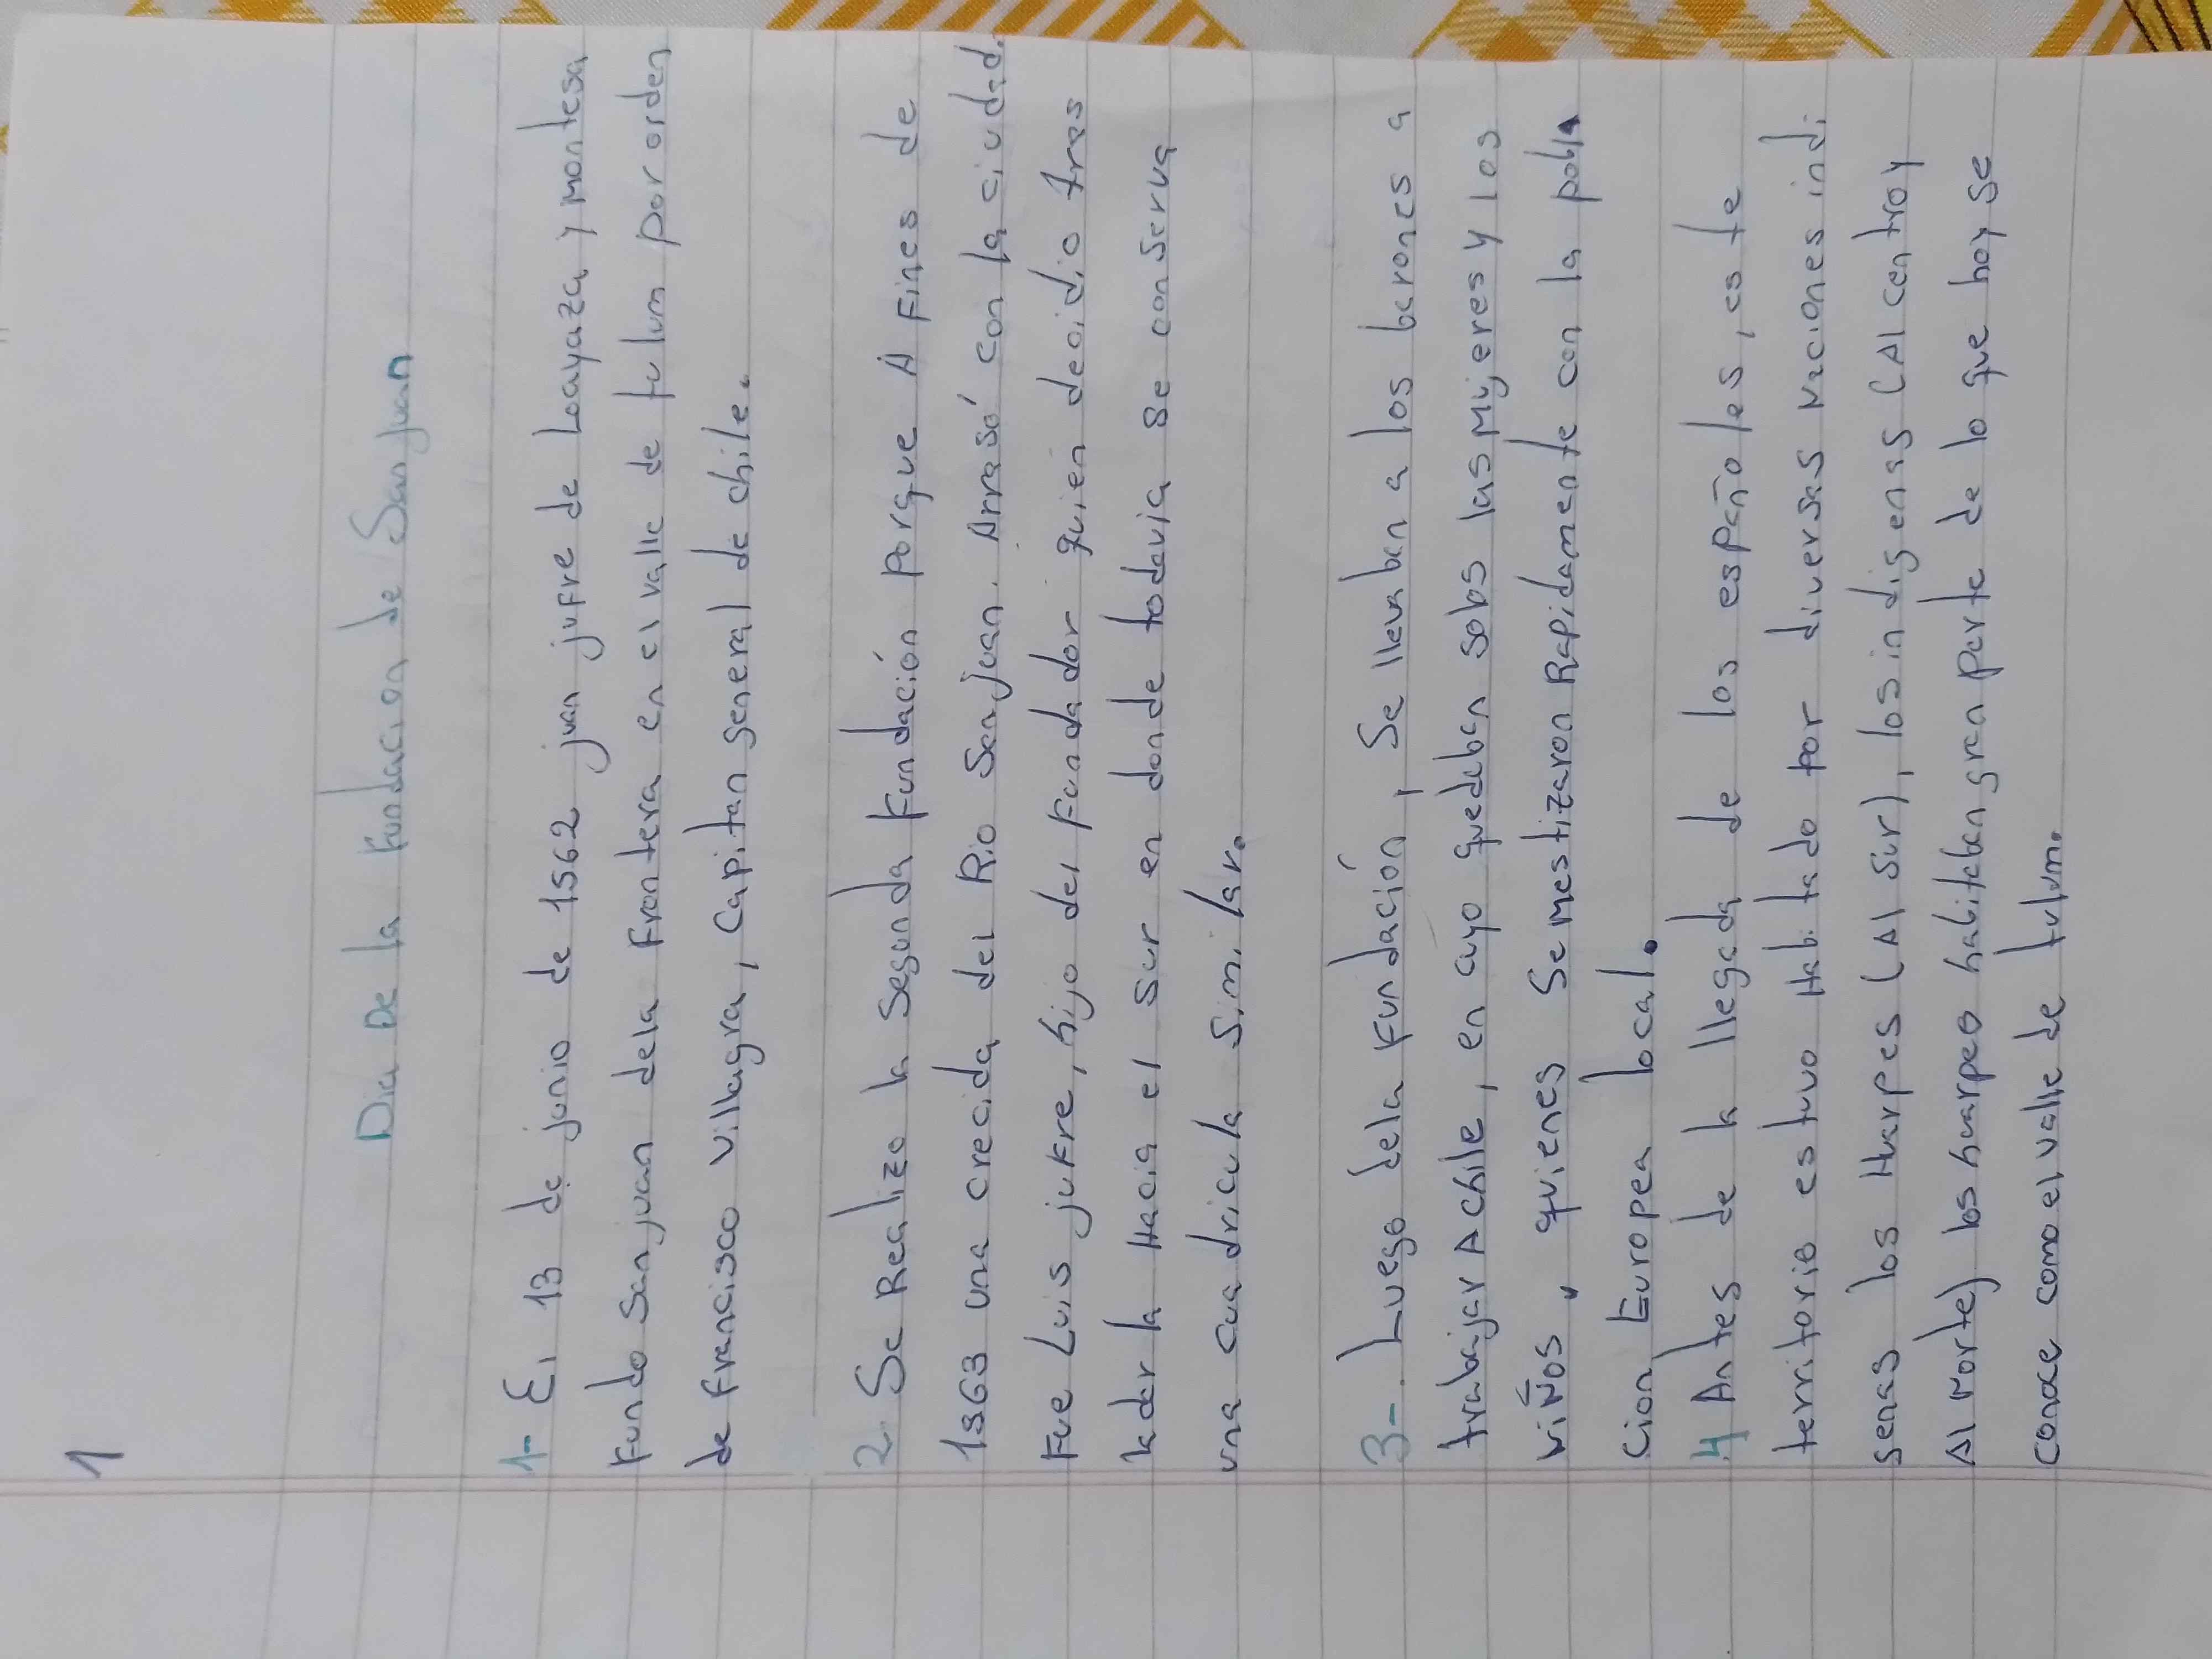 1
Dia De la Fundacion de San juan
1- El 13 de junio de 1562 juan jufre de Loayaza y Montesa
Fundo San juan dela Frontera en el valle de tulum por orden
de Francisco villagra, Capitan general de chile.
2. Se Realizo la segunda Fundación porque A Fines de
1563 una crecida del Rio San juan. Arrasó con la ciudad.
Fue Luis jufre, hijo del Fundador quien decidio tras
ladar la Hacia el sur en donde todavia se conserva
una cuadricula similar.
3- Luego dela Fundación, Se llevaban a los barones a
trabajar A chile, en cuyo quedaban solos las Mujeres y los
niños, quienes Se mestizaron Rapidamente con la pobla
cion Europea local.
4 Antes de la llegada de los españoles, este
territorio estuvo Habitado por diversas Naciones indi
genas los Huarpes (Al sur), los indigenas (Al centro y
Al Norte) los huarpes habitaban gran parte de lo que hoy se
conoce como el valle de tulum.